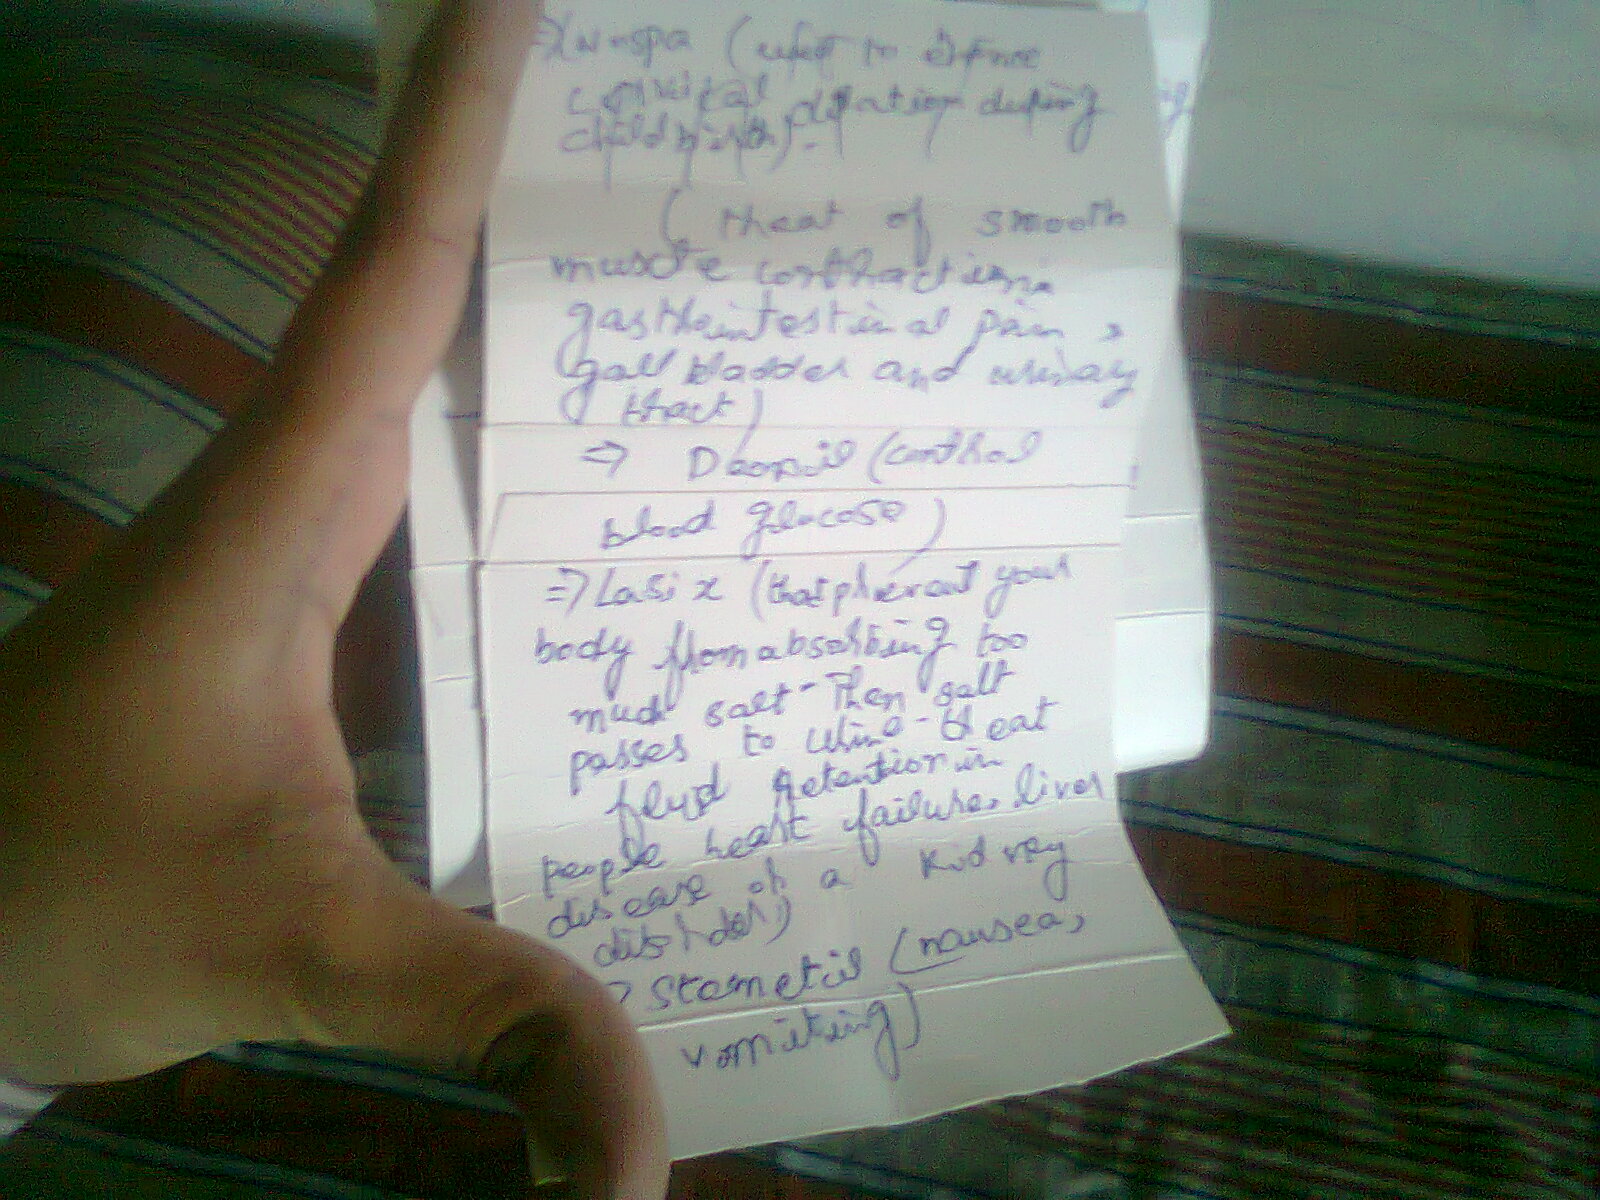 ⇒ No-spa (used to enhance
cervical dilation during
childbirth).
( treat of smooth
muscle contraction in
gastrointestinal pain,
gall bladder and urinary
tract)
⇒ Daonil (control
blood glucose)
⇒ Lasix (that prevent your
body from absorbing too
much salt - Then salt
passes to urine - treat
fluid retention in
people heart failure, liver
disease or a kidney
disorder)
⇒ Stemetil (nausea,
vomiting)